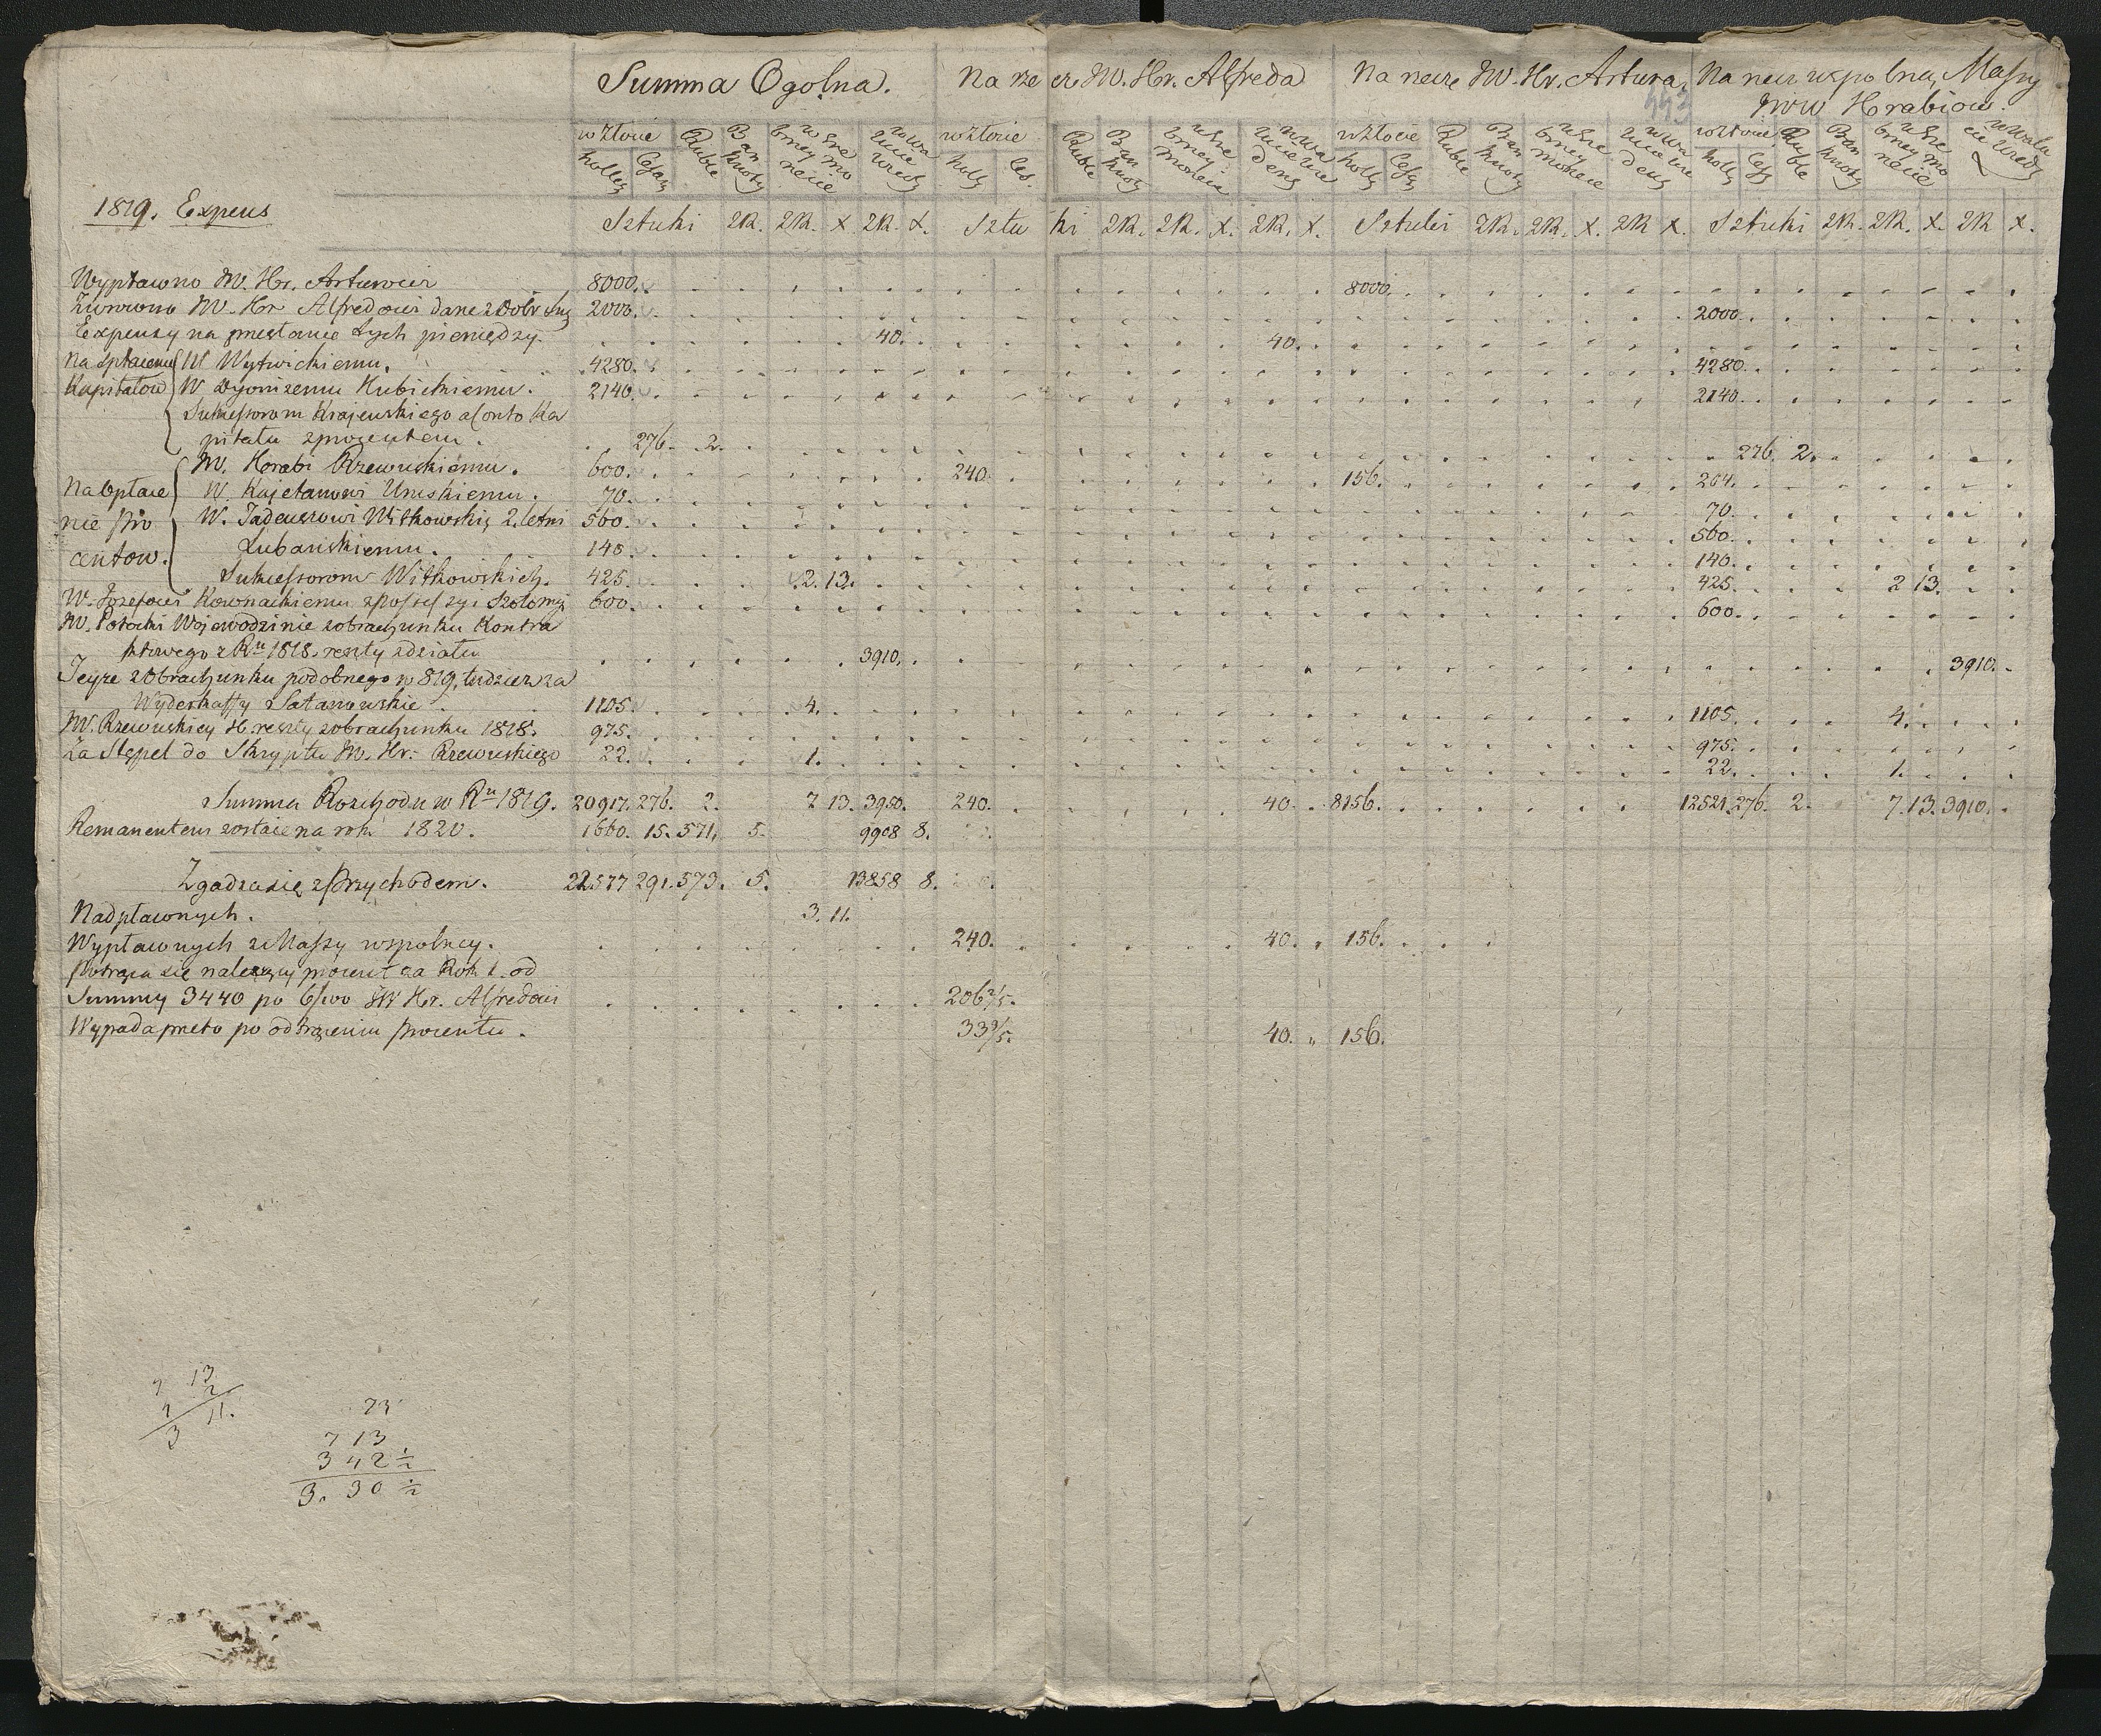 Summa Ogolna. Na rze cz JW. Hr. Alfreda Na rzecz JW. Hr. Artura. Na rzecz wspolney Massy
JWW Hrabiow.
w Złocie Ruble Ban knoty w Sre brney mo necie w Wa lucie Wied. w Złocie Ruble Ban knoty w Sre brney monecie w Wa lucie Wie dens w Złocie Ruble Ban knoty w Sre brney monecie w Wa lucie Wie dens w Złocie Ruble Ban knoty w Sre brney mo necie w Walu cie Wied.
holle Cesar holl. Ces. holl. Cesar holl. Ces.
1819. Expens
Sztuki ZR. ZR. X ZR. X. Sztu ki ZR. ZR. X. ZR. X. Sztuki ZR. ZR. X. ZR X. Sztuki ZR. ZR. X. ZR X.
Wypłacono JW. Hr. Arturowi 8000. 8000.
Zwrocono JW. Hr Alfredowi dane z Dobr 2000. 2000.
Expensy na przesłanie tych pieniędzy. 40. 40.
Na spłacenie W Wytwickiemu. 4280. 4280.
Kapitałow W Dyonizemu Kubickiemu. 2140. 2140.
Sukcessorom Krajewskiego a Conto Ka
pitału z procentem. 276. 2. 276. 2.
JW. Hrabi Rzewuskiemu. 600. 240. 156. 204.
Na Opłace W. Kajetanowi Uruskiemu. 70. 70.
nie pro W. Tadeuszowi Witkowskie 2. letni 560. 560.
centow. Lubanskiemu. 140. 140.
Sukcessorom Witkowskich. 425. 2. 13. 425. 2 13.
W. Jozefowi Kownackiemu z possessyi 600. 600.
JW. Potocki Wojewodzinie z obrachunku Kontra
ktowego z Ru 1818. reszty zdziału 3910. 3910.
Teyze z Obrachunku podobnego w 819. tudziez za
Wyderkaffy Satanowskie. 1105. 4. 1105. 4.
JW. Rzewuskiey H. reszty z obrachunku 1818. 975. 975.
Za Stępel do Skryptu JW. Hr. Rzewuskiego 22. 1. 22. 1.
Summa Rozchodu w Ru 1819. 20917. 276. 2. 7 13. 3950. 240. 40. 8156. 12521. 276. 2. 7. 13. 3910.
Remanentem zostaie na rok 1820. 1660. 15. 571. 5. 9908 8.
Zgadza się z Przychodem. 22577 291. 573. 5. 13858 8.
Nadpłaconych. 3. 11.
Wypłaconych z Massy wspolney. 240. 40. 156.
Potrąca się należący procent za Rok 1. od
Summy 3440 po 6/100 JW Hr. Alfredowi 206 2/5.
Wypada przeto po odtrąceniu procentu. 33 3/5. 40. " 156.
7 13
4 2
3 11.
23
7 13
3 42 1/2
3. 30 1/2